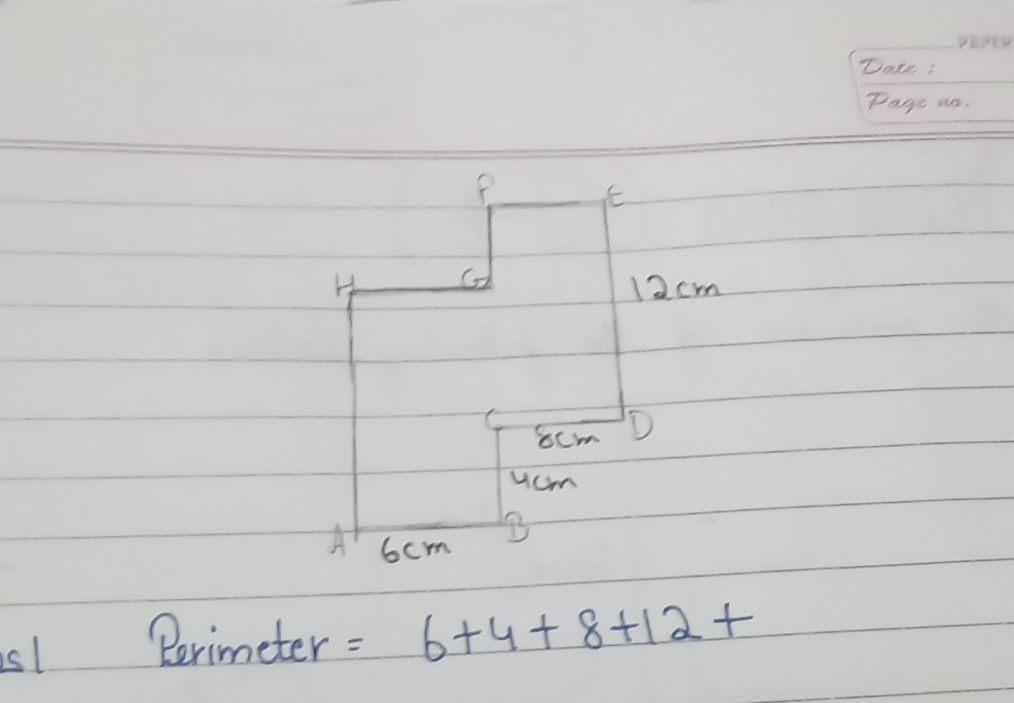 PAPER
Date :
Page no.
P E
H G
12cm
C D
8cm
4cm
A B
6cm
Perimeter = 6+4+8+12+